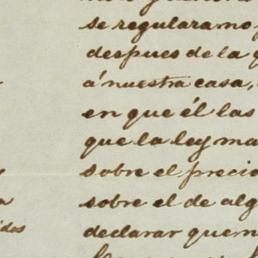 se regulara no
despues de la
á nuestra casa,
en que él las
que la ley ma
sobre el precio
sobre el de alg
declarar que n